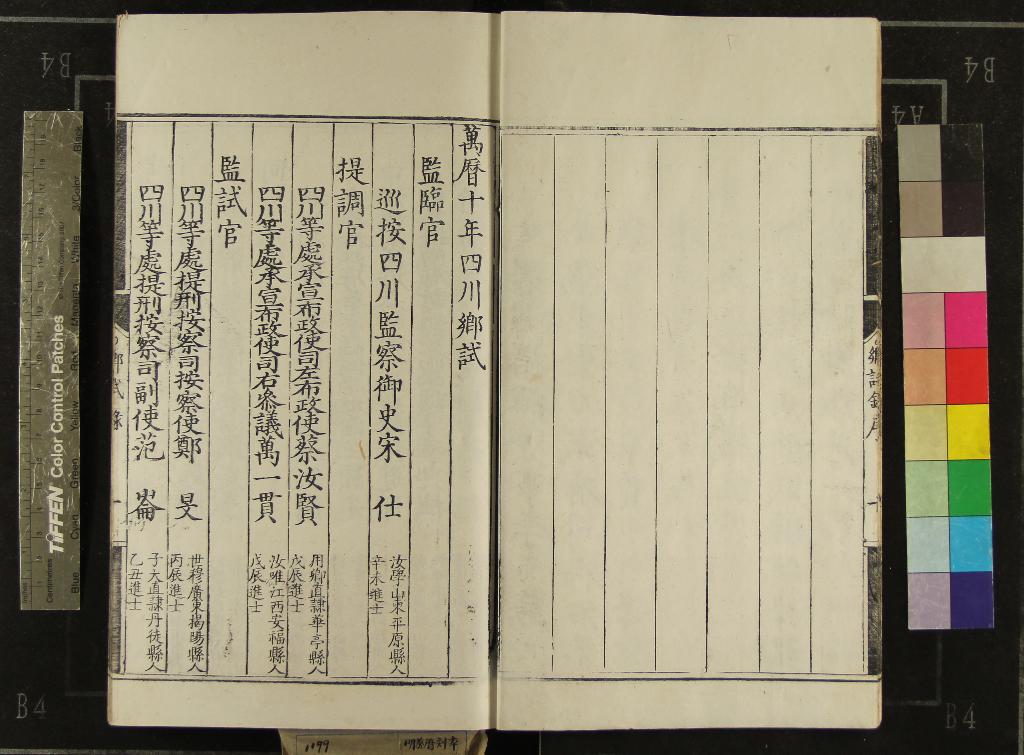 萬曆十年四川鄉試
監臨官
巡按四川監察御史宋 仕 汝學山東平原縣人
辛未進士
提調官
四川等處承宣布政使司左布政使蔡汝賢 用卿直隷華亭縣人
戊辰進士
四川等處承宣布政使司右叅議萬一貫 汝唯江西安福縣人
戊辰進士
監試官
四川等處提刑按察司按察使鄭 旻 世穆廣東揭陽縣人
丙辰進士
四川等處提刑按察司副使范 崙 子大直隷丹徒縣人
乙丑進士
鄉試錄序
一
鄉試錄
一
TIFFEN Color Control Patches
Blue
Cyan
Green
Yellow
Red
Magenta
White
3/Color
Black
Centimetres
Inches
B4
B4
B4
B4
A4
1099
明萬曆刻本